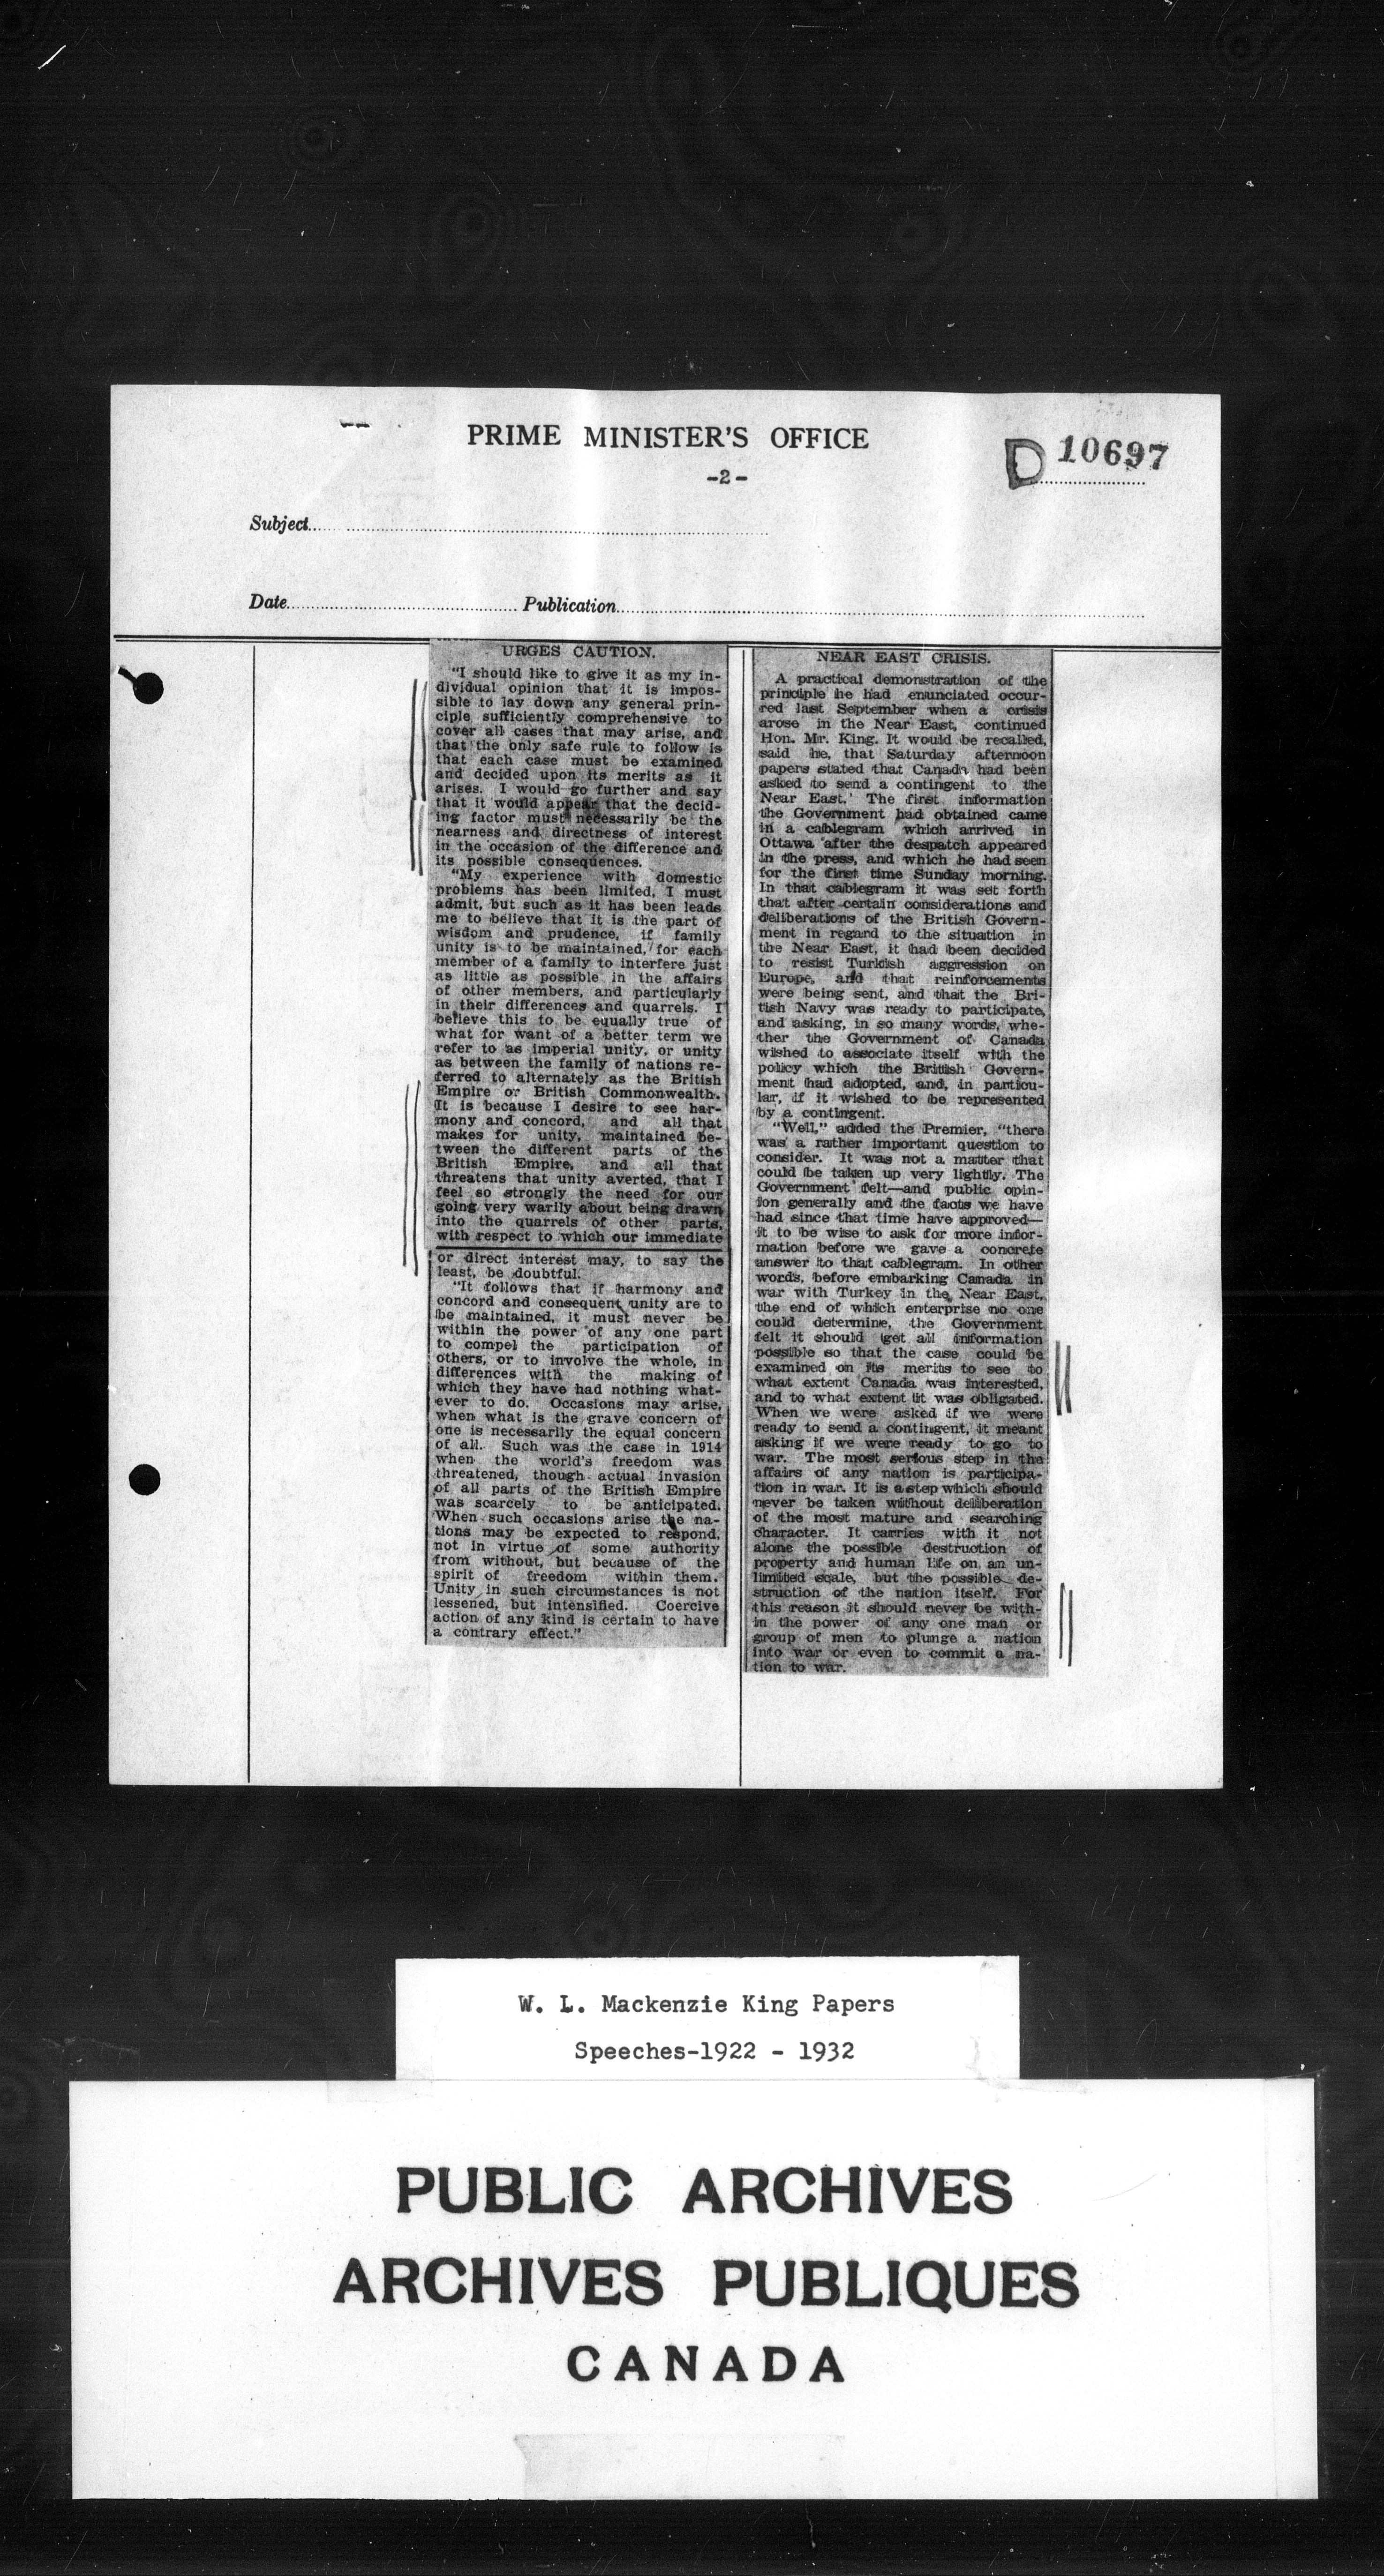 PRIME MINISTER'S OFFICE
-2-
D 10697
Subject
Date Publication
URGES CAUTION.
"I should like to give it as my in-
dividual opinion that it is impos-
sible to lay down any general prin-
ciple sufficiently comprehensive to
cover all cases that may arise, and
that the only safe rule to follow is
that each case must be examined
and decided upon its merits as it
arises. I would go further and say
that it would appear that the decid-
ing factor must necessarily be the
nearness and directness of interest
in the occasion of the difference and
its possible consequences.
"My experience with domestic
problems has been limited, I must
admit, but such as it has been leads
me to believe that it is the part of
wisdom and prudence, if family
unity is to be maintained, for each
member of a family to interfere just
as little as possible in the affairs
of other members, and particularly
in their differences and quarrels. I
believe this to be equally true of
what for want of a better term we
refer to as imperial unity, or unity
as between the family of nations re-
ferred to alternately as the British
Empire or British Commonwealth.
It is because I desire to see har-
mony and concord, and all that
makes for unity, maintained be-
tween the different parts of the
British Empire, and all that
threatens that unity averted, that I
feel so strongly the need for our
going very warily about being drawn
into the quarrels of other parts,
with respect to which our immediate
or direct interest may, to say the
least, be doubtful.
"It follows that if harmony and
concord and consequent unity are to
be maintained, it must never be
within the power of any one part
to compel the participation of
others, or to involve the whole, in
differences with the making of
which they have had nothing what-
ever to do. Occasions may arise,
when what is the grave concern of
one is necessarily the equal concern
of all. Such was the case in 1914
when the world's freedom was
threatened, though actual invasion
of all parts of the British Empire
was scarcely to be anticipated.
When such occasions arise the na-
tions may be expected to respond,
not in virtue of some authority
from without, but because of the
spirit of freedom within them.
Unity in such circumstances is not
lessened, but intensified. Coercive
action of any kind is certain to have
a contrary effect."
NEAR EAST CRISIS.
A practical demonstration of the
principle he had enunciated occur-
red last September when a crisis
arose in the Near East, continued
Hon. Mr. King. It would be recalled,
said he, that Saturday afternoon
papers stated that Canada had been
asked to send a contingent to the
Near East. The first information
the Government had obtained came
in a cablegram which arrived in
Ottawa after the despatch appeared
in the press, and which he had seen
for the first time Sunday morning.
In that cablegram it was set forth
that after certain considerations and
deliberations of the British Govern-
ment in regard to the situation in
the Near East, it had been decided
to resist Turkish aggression on
Europe, and that reinforcements
were being sent, and that the Bri-
tish Navy was ready to participate,
and asking, in so many words, whe-
ther the Government of Canada
wished to associate itself with the
policy which the British Govern-
ment had adopted, and, in particu-
lar, if it wished to be represented
by a contingent.
"Well," added the Premier, "there
was a rather important question to
consider. It was not a matter that
could be taken up very lightly. The
Government felt—and public opin-
ion generally and the facts we have
had since that time have approved—
it to be wise to ask for more infor-
mation before we gave a concrete
answer to that cablegram. In other
words, before embarking Canada in
war with Turkey in the Near East,
the end of which enterprise no one
could determine, the Government
felt it should get all information
possible so that the case could be
examined on its merits to see to
what extent Canada was interested,
and to what extent it was obligated.
When we were asked if we were
ready to send a contingent, it meant
asking if we were ready to go to
war. The most serious step in the
affairs of any nation is participa-
tion in war. It is a step which should
never be taken without deliberation
of the most mature and searching
character. It carries with it not
alone the possible destruction of
property and human life on an un-
limited scale, but the possible de-
struction of the nation itself. For
this reason it should never be with-
in the power of any one man or
group of men to plunge a nation
into war or even to commit a na-
tion to war.
W. L. Mackenzie King Papers
Speeches-1922 - 1932
PUBLIC ARCHIVES
ARCHIVES PUBLIQUES
CANADA